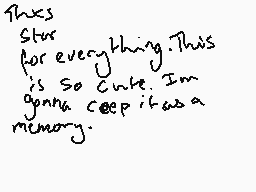 Thxs
Star
for everything. This
is so cute. Im
gonna ceep it as a
memory.